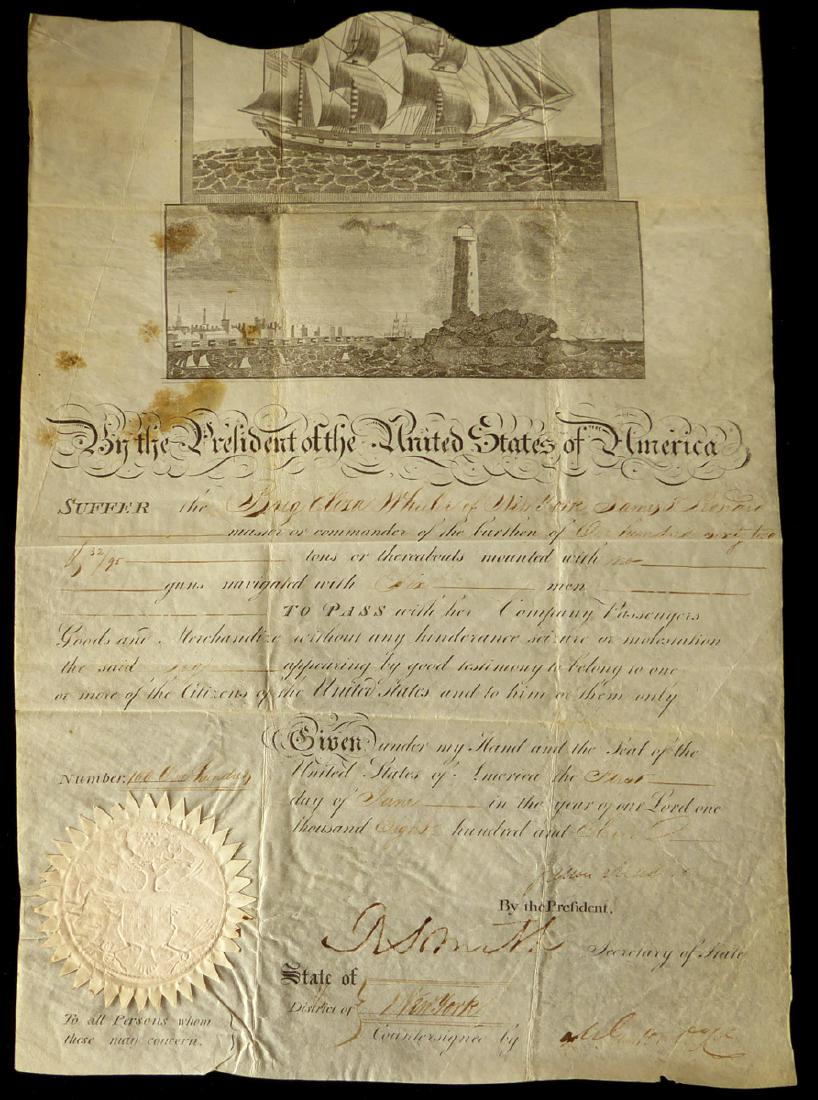 By the President of the United States of America
SUFFER the Brig Eliza of New York James
master or commander of the burthen of One hundred sixty two
32/95 tons or thereabouts mounted with no
guns navigated with Six men
TO PASS with her Company Passengers
Goods and Merchandize without any hinderance seizure or molestation
the said Brig appearing by good testimony to belong to one
or more of the Citizens of the United States and to him or them only
Given under my Hand and the Seal of the
United States of America the First
day of June in the year of our Lord one
thousand Eight hundred and
Number. 100 One hundred
By the President,
R Smith Secretary of State
State of
District of New York
Countersigned by
To all Persons whom
these may concern.